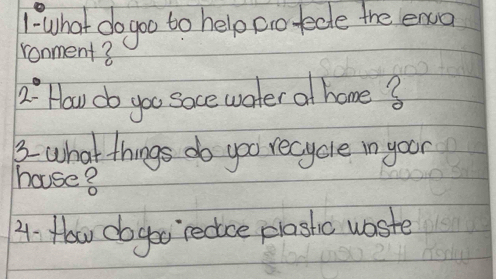 1- What do you to help protecte the enva
ronment?
2- How do you sace water at home ?
3- what things do you recycle in your
house?
4- How do you reduce plastic waste